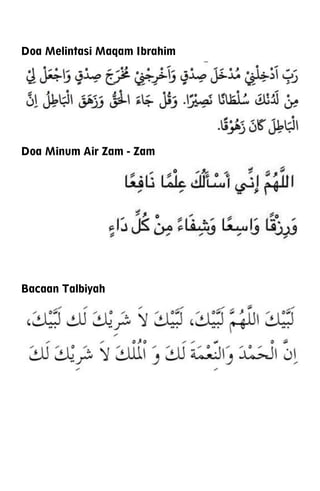 Doa Melintasi Maqam Ibrahim
رَبِّ اَدْخِلْنِيْ مُدْخَلَ صِدْقٍ وَاَخْرِجْنِيْ مُخْرَجَ صِدْقٍ وَاجْعَلْ لِيْ
مِنْ لَدُنْكَ سُلْطَانًا نَصِيْرًا. وَقُلْ جَاءَ الْحَقُّ وَزَهَقَ الْبَاطِلُ اِنَّ
الْبَاطِلَ كَانَ زَهُوْقًا.
Doa Minum Air Zam - Zam
اللَّهُمَّ إِنِّي أَسْأَلُكَ عِلْمًا نَافِعًا
وَرِزْقًا وَاسِعًا وَشِفَاءً مِنْ كُلِّ دَاءٍ
Bacaan Talbiyah
لَبَّيْكَ اللَّهُمَّ لَبَّيْكَ، لَبَّيْكَ لاَ شَرِيْكَ لَكَ لَبَّيْكَ،
اِنَّ الْحَمْدَ وَالنِّعْمَةَ لَكَ وَ الْمُلْكَ لاَ شَرِيْكَ لَكَ